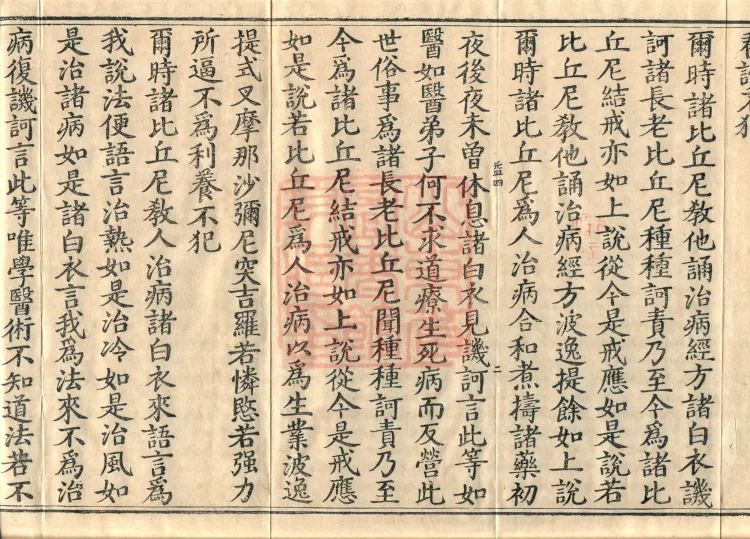 爾時諸比丘尼教他誦治病經方諸白衣譏
訶諸長老比丘尼種種訶責乃至今為諸比
丘尼結戒亦如上說從今是戒應如是說若
比丘尼教他誦治病經方波逸提餘如上說
爾時諸比丘尼為人治病合和煮擣諸藥初
夜後夜未曾休息諸白衣見譏訶言此等如
醫如醫弟子何不求道療生死病而反營此
世俗事為諸長老比丘尼聞種種訶責乃至
今為諸比丘尼結戒亦如上說從今是戒應
如是說若比丘尼為人治病以為生業波逸
提式叉摩那沙彌尼突吉羅若憐愍若强力
所逼不為利養不犯
爾時諸比丘尼教人治病諸白衣來語言為
我說法便語言治熱如是治冷如是治風如
是治諸病如是諸白衣言我為法來不為治
病復譏訶言此等唯學醫術不知道法若不